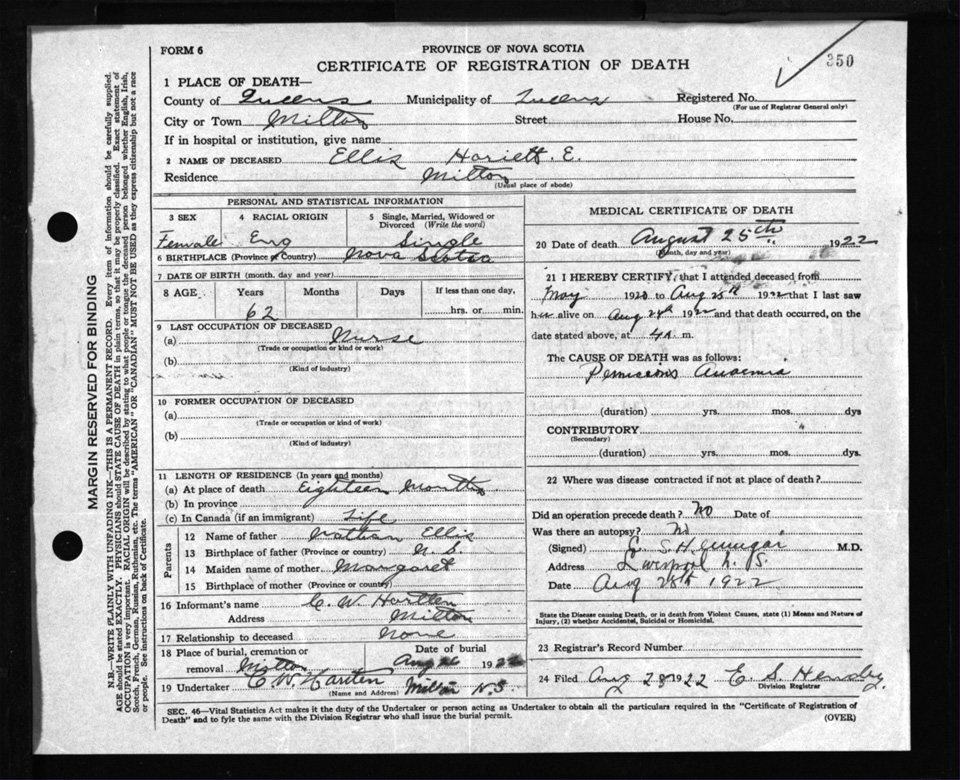 FORM 6
PROVINCE OF NOVA SCOTIA
350
CERTIFICATE OF REGISTRATION OF DEATH
1 PLACE OF DEATH—
County of Queens Municipality of Queens Registered No.
(For use of Registrar General only)
City or Town Milton Street House No.
If in hospital or institution, give name
2 NAME OF DECEASED Ellis Hariett. E.
Residence Milton
(Usual place of abode)
PERSONAL AND STATISTICAL INFORMATION
3 SEX 4 RACIAL ORIGIN 5 Single, Married, Widowed or Divorced (Write the word)
Female Eng Single
6 BIRTHPLACE (Province or Country) Nova Scotia
7 DATE OF BIRTH (month, day and year)
8 AGE Years Months Days If less than one day,
62 hrs. or min.
9 LAST OCCUPATION OF DECEASED
(a) Nurse
(Trade or occupation or kind or work)
(b)
(Kind of industry)
10 FORMER OCCUPATION OF DECEASED
(a)
(Trade or occupation or kind of work)
(b)
(Kind of industry)
11 LENGTH OF RESIDENCE (In years and months)
(a) At place of death Eighteen Months
(b) In province
(c) In Canada (if an immigrant) Life
Parents
12 Name of father Ellis
13 Birthplace of father (Province or country) N. S.
14 Maiden name of mother Margaret
15 Birthplace of mother (Province or country)
16 Informant's name C. W. Hartlen
Address Milton
17 Relationship to deceased None
18 Place of burial, cremation or removal Milton Date of burial Aug 26 1922
19 Undertaker C. W. Milton N.S.
(Name and Address)
MEDICAL CERTIFICATE OF DEATH
20 Date of death August 25th 1922
(Month, day and year)
21 I HEREBY CERTIFY, that I attended deceased from
May 1920 to Aug 25th 1922 that I last saw
alive on Aug 24th 1922 and that death occurred, on the
date stated above, at 4 A m.
The CAUSE OF DEATH was as follows:
Pernicious Anaemia
(duration) yrs. mos. dys
CONTRIBUTORY
(Secondary)
(duration) yrs. mos. dys.
22 Where was disease contracted if not at place of death?
Did an operation precede death? No Date of
Was there an autopsy? No
(Signed) M.D.
Address Liverpool N. S.
Date Aug 28th 1922
State the Disease causing Death, or in death from Violent Causes, state (1) Means and Nature of
Injury, (2) whether Accidental, Suicidal or Homicidal.
23 Registrar's Record Number
24 Filed Aug 28 1922 E. S.
Division Registrar
SEC. 46—Vital Statistics Act makes it the duty of the Undertaker or person acting as Undertaker to obtain all the particulars required in the "Certificate of Registration of
Death" and to fyle the same with the Division Registrar who shall issue the burial permit.
(OVER)
MARGIN RESERVED FOR BINDING
N.B—WRITE PLAINLY WITH UNFADING INK—THIS IS A PERMANENT RECORD. Every item of information should be carefully supplied.
AGE should be stated EXACTLY. PHYSICIANS should STATE CAUSE OF DEATH in plain terms, so that it may be properly classified. Exact statement of
OCCUPATION is very important. RACIAL ORIGIN will be described by stating to what people or tongue the deceased person belonged whether English, Irish,
Scotch, French, German, Russian, Ruthenian, etc. The terms "AMERICAN" OR "CANADIAN" MUST NOT BE USED as they express citizenship but not a race
or people. See instructions on back of Certificate.